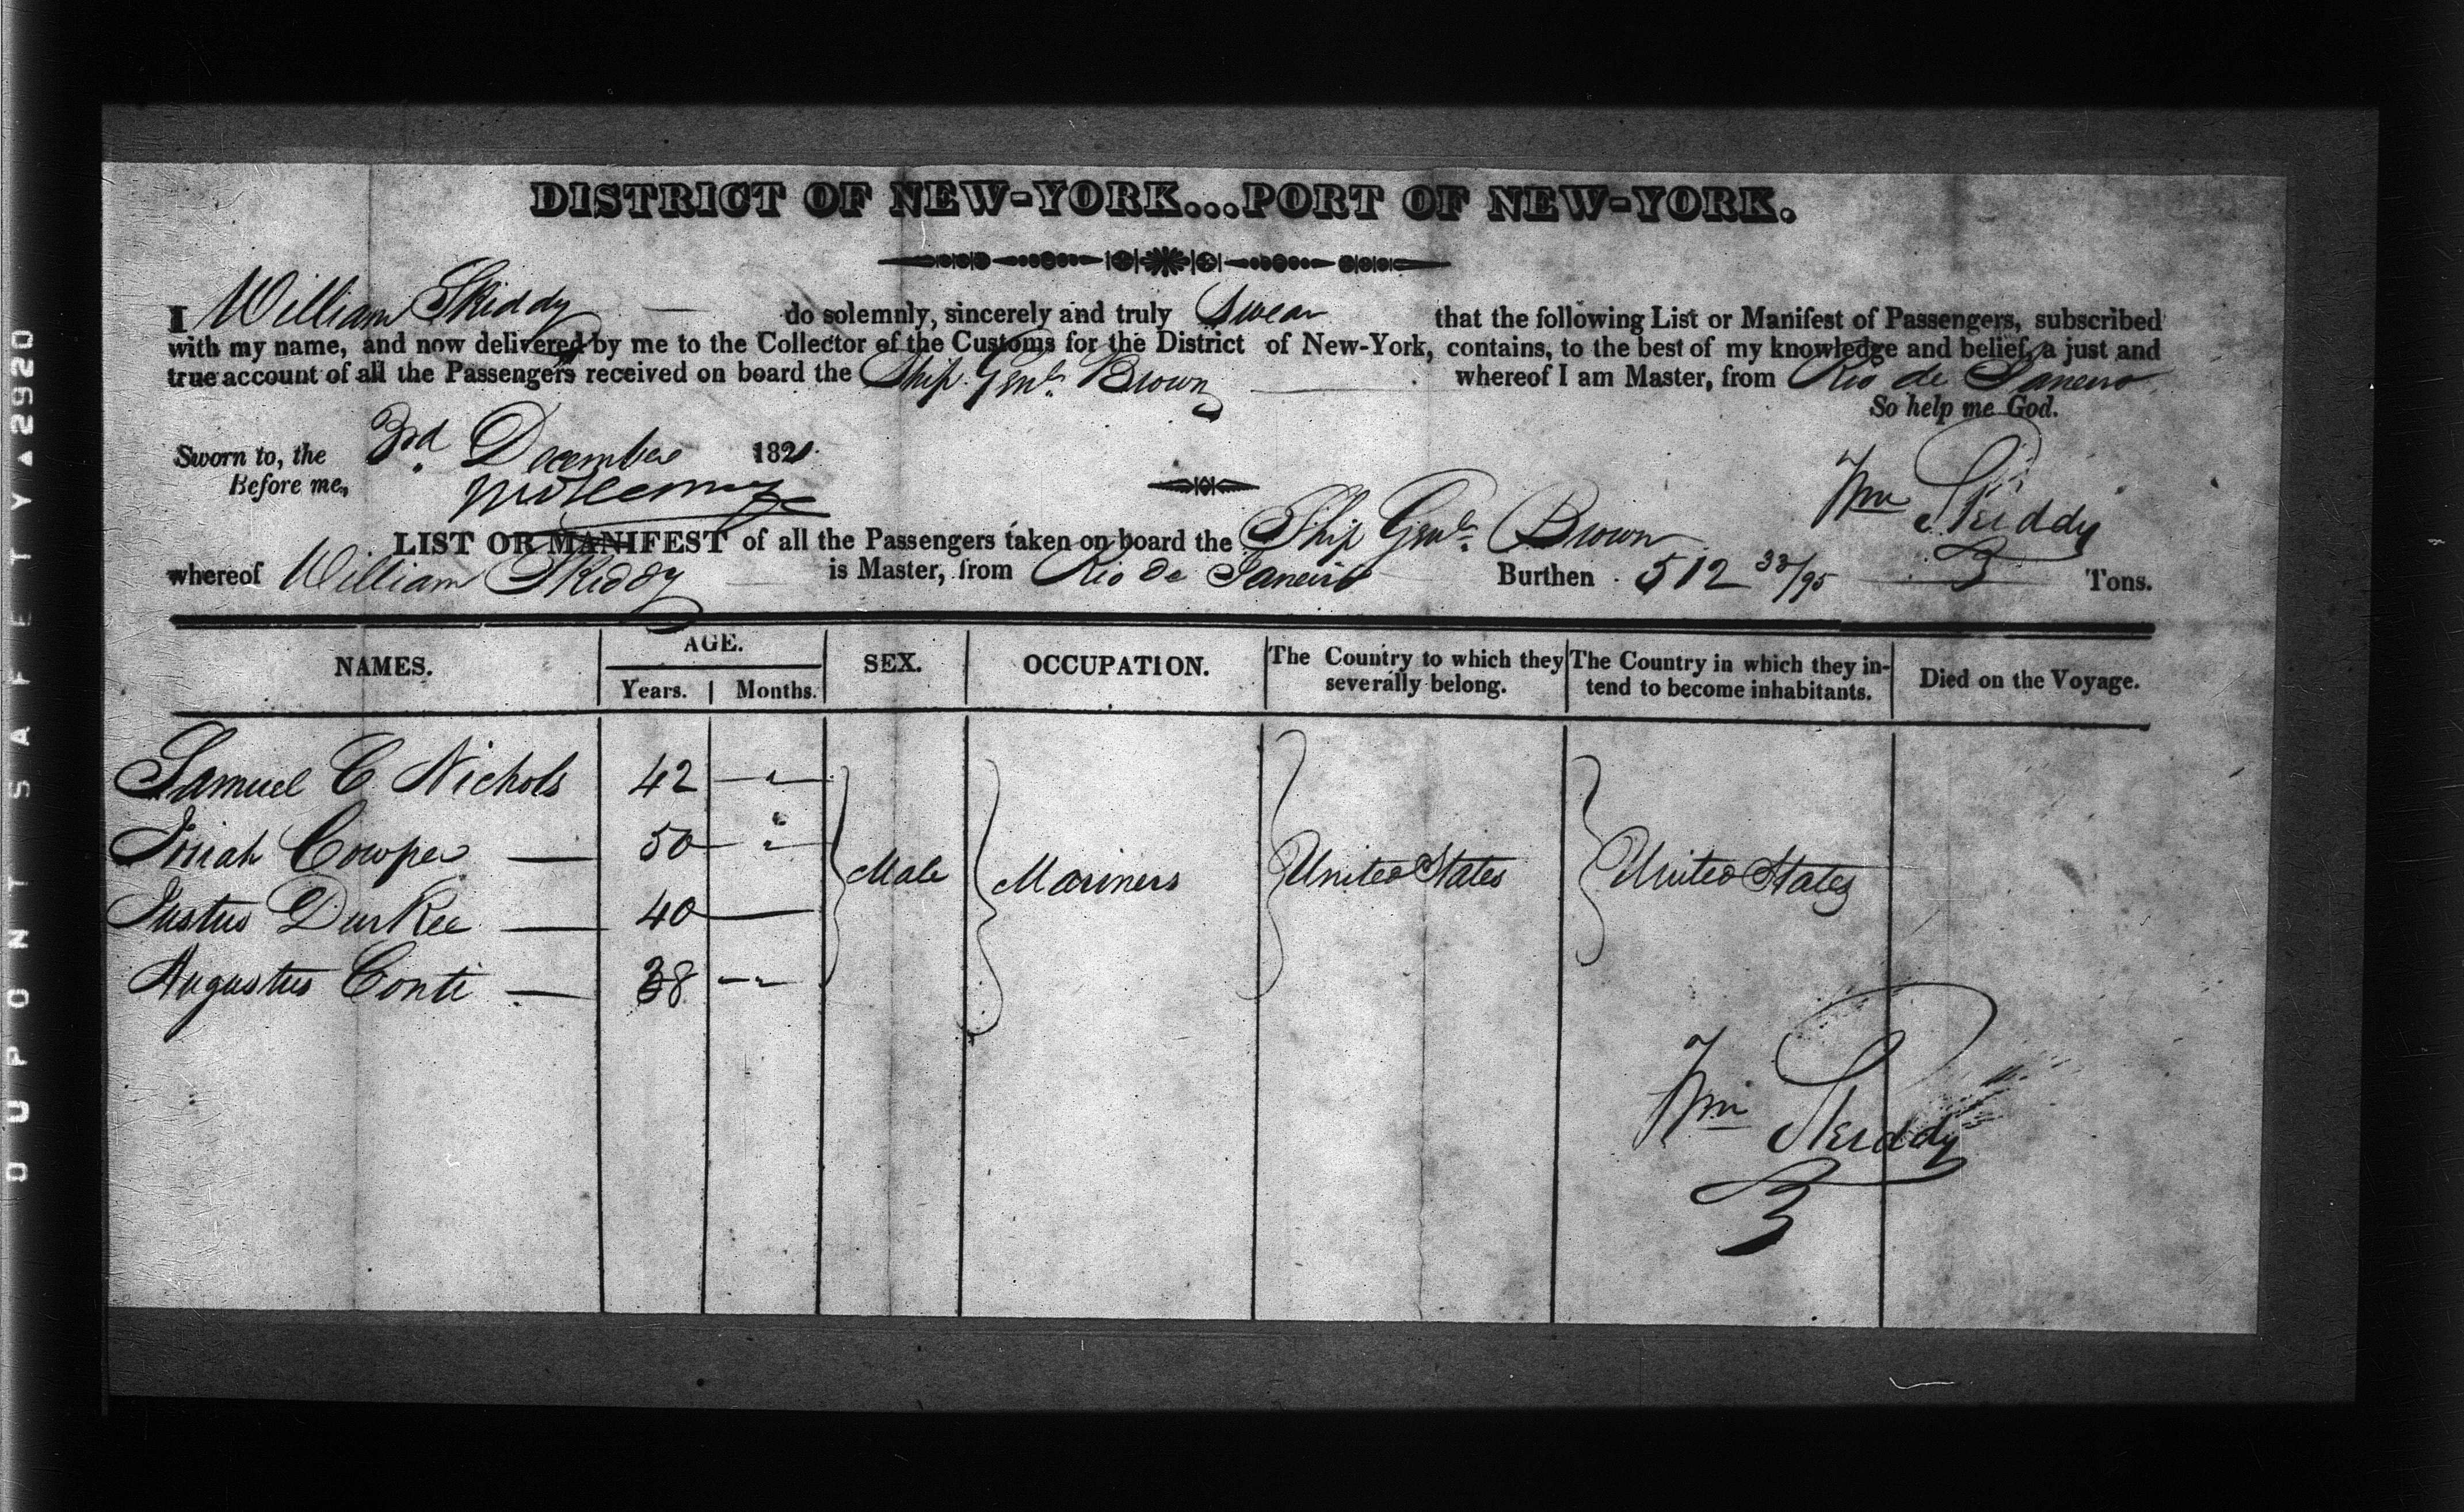 DISTRICT OF NEW-YORK...PORT OF NEW-YORK.
I William Skiddy — do solemnly, sincerely and truly Swear that the following List or Manifest of Passengers, subscribed
with my name, and now delivered by me to the Collector of the Customs for the District of New-York, contains, to the best of my knowledge and belief, a just and
true account of all the Passengers received on board the Ship Genl. Brown whereof I am Master, from Rio de Janeiro
So help me God.
Sworn to, the 3rd December 182
Before me,
Wm Skiddy
LIST OR MANIFEST of all the Passengers taken on board the Ship Genl. Brown
whereof William Skiddy is Master, from Rio de Janeiro Burthen 512 33/95 Tons.
NAMES. AGE. SEX. OCCUPATION. The Country to which they severally belong. The Country in which they in-tend to become inhabitants. Died on the Voyage.
Years. Months.
Samuel C Nichols 42
Cowper 50
Justus Durkee 40
Augustus Conti 38
Male Mariners United States United States
Wm Skiddy
DUPONT SAFETY 2920